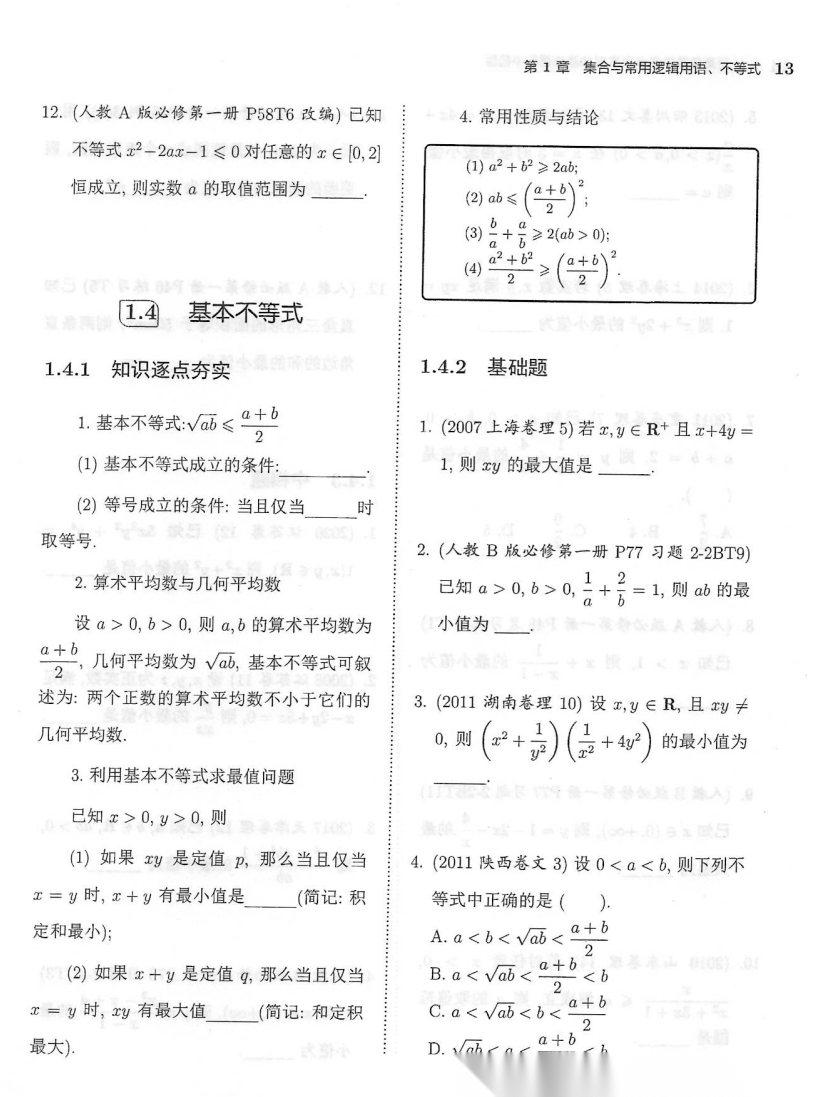 第 1 章 集合与常用逻辑用语、不等式 13
12. (人教 A 版必修第一册 P58T6 改编) 已知
不等式 x²−2ax−1 ⩽ 0 对任意的 x ∈ [0, 2]
恒成立, 则实数 a 的取值范围为 ______.
1.4 基本不等式
1.4.1 知识逐点夯实
1. 基本不等式: √ab ⩽ (a+b)/2
(1) 基本不等式成立的条件: ________.
(2) 等号成立的条件: 当且仅当______时
取等号.
2. 算术平均数与几何平均数
设 a > 0, b > 0, 则 a, b 的算术平均数为
(a+b)/2, 几何平均数为 √ab, 基本不等式可叙
述为: 两个正数的算术平均数不小于它们的
几何平均数.
3. 利用基本不等式求最值问题
已知 x > 0, y > 0, 则
(1) 如果 xy 是定值 p, 那么当且仅当
x = y 时, x + y 有最小值是______(简记: 积
定和最小);
(2) 如果 x + y 是定值 q, 那么当且仅当
x = y 时, xy 有最大值______(简记: 和定积
最大).
4. 常用性质与结论
(1) a² + b² ⩾ 2ab;
(2) ab ⩽ ((a+b)/2)²;
(3) b/a + a/b ⩾ 2(ab > 0);
(4) (a²+b²)/2 ⩾ ((a+b)/2)².
1.4.2 基础题
1. (2007 上海卷理 5) 若 x, y ∈ R⁺ 且 x+4y =
1, 则 xy 的最大值是 ______.
2. (人教 B 版必修第一册 P77 习题 2-2BT9)
已知 a > 0, b > 0, 1/a + 2/b = 1, 则 ab 的最
小值为 ____.
3. (2011 湖南卷理 10) 设 x, y ∈ R, 且 xy ≠
0, 则 (x² + 1/y²)(1/x² + 4y²) 的最小值为
______.
4. (2011 陕西卷文 3) 设 0 < a < b, 则下列不
等式中正确的是 ( ).
A. a < b < √ab < (a+b)/2
B. a < √ab < (a+b)/2 < b
C. a < √ab < b < (a+b)/2
D. √ab < a < (a+b)/2 < b